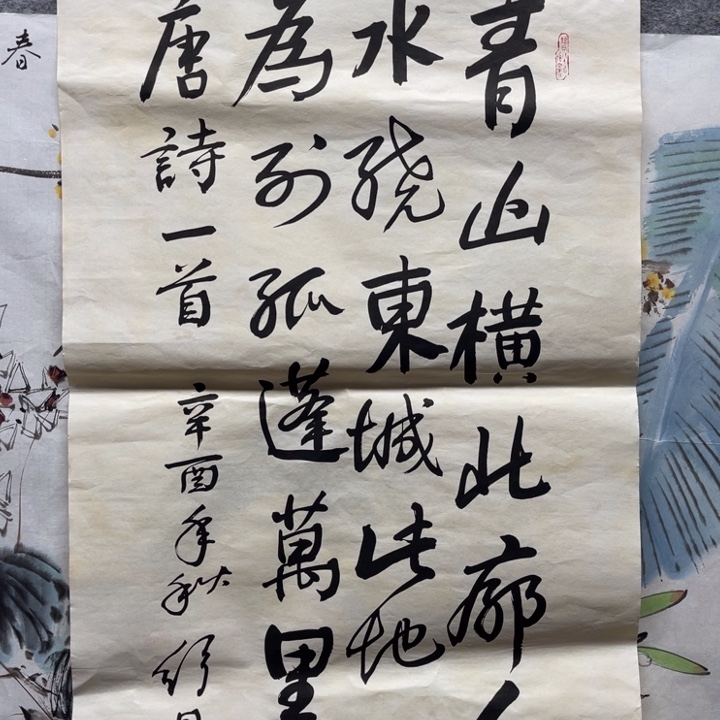 青山横北廓
水绕東城此地
為别孤蓬萬里
唐詩一首 辛酉年秋
春